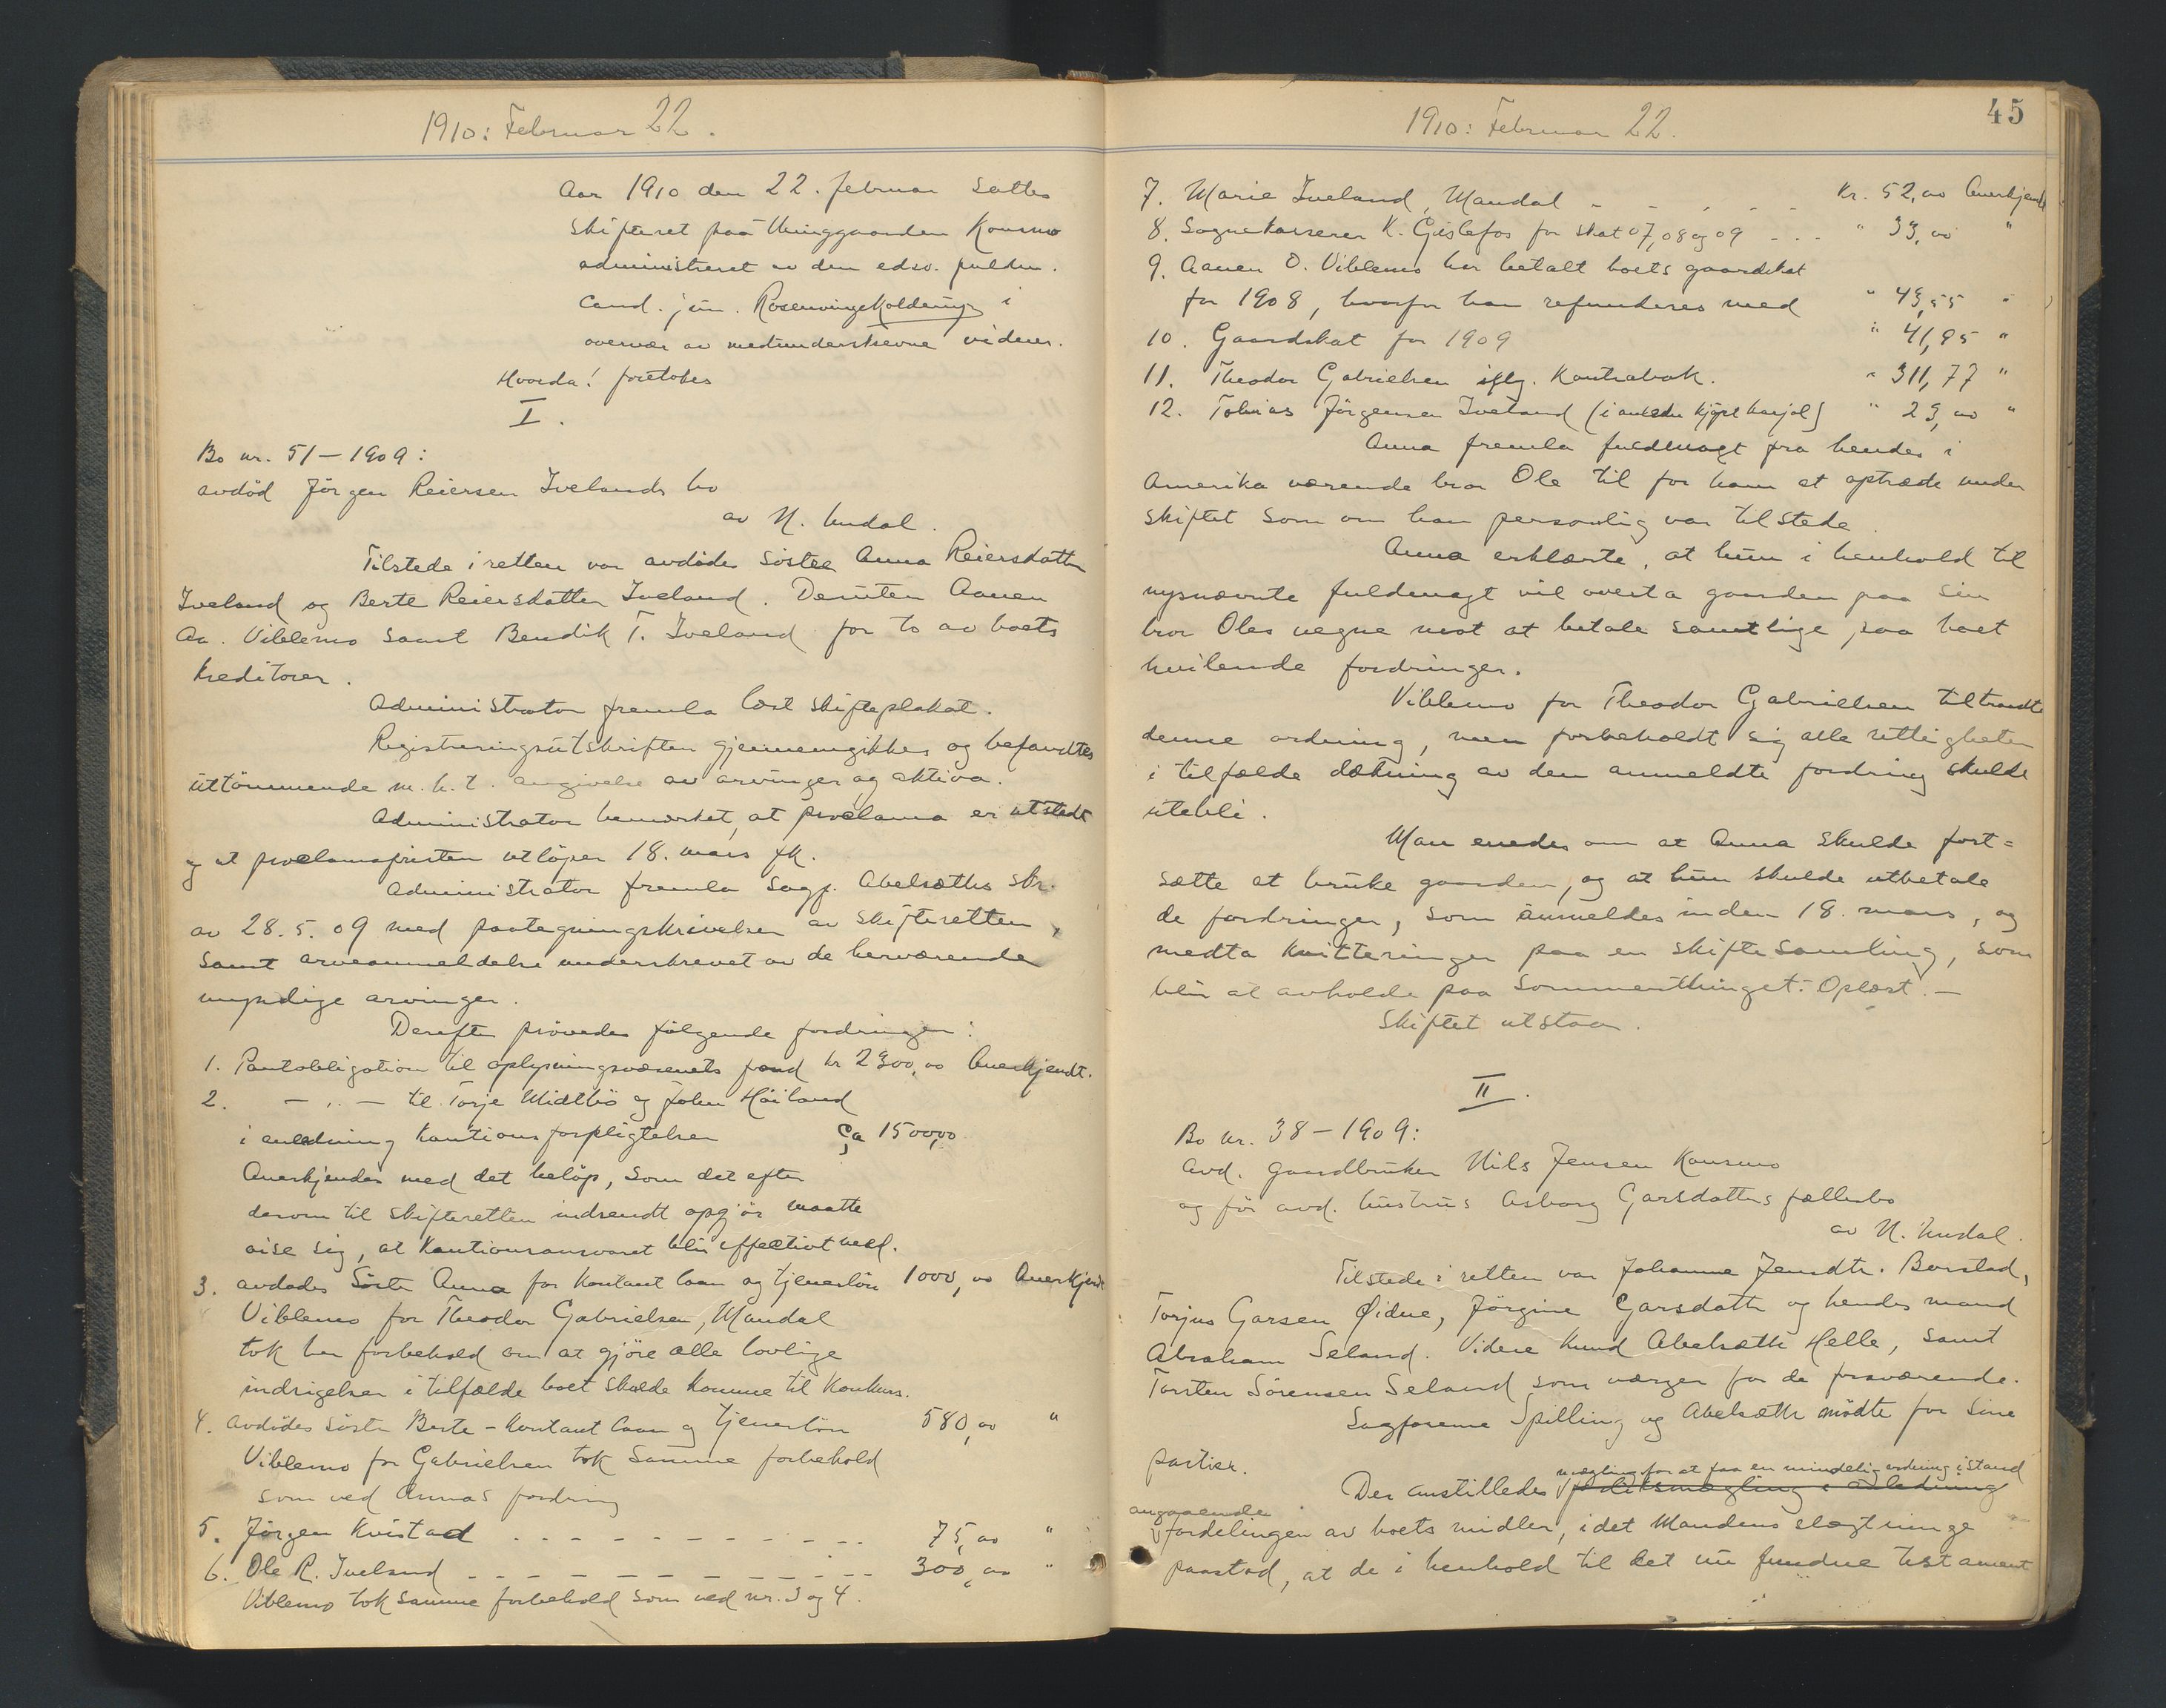 1910: Februar 22.
Aar 1910 den 22. februar sattes
skifteret paa thinggaarden Konsmo
administreret av den edsv. fuldm.
cand. jur. Rosenvinge Kolderup i
overvær av medunderskrevne vidner.
Hvorda! foretokes
I.
Bo nr. 51 – 1909:
avdöd Jörgen Reiersen Ivelands bo
av N. Undal.
Tilstede i retten var avdödes söster Anna Reiersdatter
Iveland og Berte Reiersdatter Iveland. Desuten Aanen
Aa. Viblemo samt Bendik T. Iveland for to av boets
kreditorer.
Administrator fremla læst skifteplakat.
Registreringsutskriften gjennemgikkes og befandtes
uttömmende m. h. t. angivelse av arvinger og aktiva.
Administrator bemerket, at proclama er utstedt
og at proclamafristen utlöper 18. mars fk.
Administrator fremla sagf. Abelsæths skr.
av 28.5.09 med paategningskrivelser av skifteretten,
samt arveanmeldelse underskrevet av de herværende
myndige arvinger.
Derefter prövedes fölgende fordringer:
1. Pantobligation til oplysningsvæsenets fond kr 2300,00 Anerkjendt.
2. – ,, – til Torje Midtbö og John Höiland
i anledning kautionsforpligtelser ca 1500,00
Anerkjendes med det belöp, som det efter
derom til skifteretten indsendt opgjör maatte
vise sig, at kautionsansvaret blir effectivt ved.
3. avdödes söster Anna for kontant laan og tjenerlön 1000,00 Anerkjendt
Viblemo for Theodor Gabrielsen, Mandal
tok her forbehold om at gjöre alle lovlige
indsigelser i tilfælde boet skulde komme til konkurs.
4. avdödes söster Berte – kontant laan og tjenerlön 580,00 "
Viblemo for Gabrielsen tok samme forbehold
som ved Annas fordring
5. Jörgen Kvistad - - - - - - - - - - 75,00 "
6. Ole R. Iveland - - - - - - - - - - 300,00 "
Viblemo tok samme forbehold som ved nr. 3 og 4.
1910: Februar 22.
45
7. Marie Iveland, Mandal - - - - - Kr. 52,00 Anerkjendt
8. Sognekasserer K. Gislefos for skat 07, 08 og 09 - - - " 33,00 "
9. Aanen O. Viblemo har betalt boets gaardskat
for 1908, hvorfor han refunderes med " 43,55 "
10. Gaardskat for 1909 " 41,95 "
11. Theodor Gabrielsen iflg. Kontrabok. " 311,77 "
12. Tobias Jörgensen Iveland (i anledn kjöpt karjol) " 23,00 "
Anna fremla fuldmagt fra hendes i
Amerika værende bror Ole til for ham at optræde under
skiftet som om han personlig var tilstede.
Anna erklærte, at hun i henhold til
nysnævnte fuldmagt vil overta gaarden paa sin
bror Oles vegne mot at betale samtlige, paa boet
hvilende fordringer.
Viblemo for Theodor Gabrielsen tiltraadte
denne ordning, men forbeholdt sig alle rettigheter
i tilfælde dækning av den anmeldte fordring skulde
utebli.
Man enedes om at Anna skulde fort=
sætte at bruke gaarden, og at hun skulde utbetale
de fordringer, som anmeldes inden 18. mars, og
medta kvitteringer paa en skiftesamling, som
blir at avholde paa Sommerthinget. Oplæst. –
Skiftet utstaar.
II.
Bo nr. 38 – 1909:
Avd. gaardbruker Nils Jensen Konsmo
og för avd. hustrus Asborg Garsdatters fællesbo
av N. Undal.
Tilstede i retten var Johanne Jensdtr. Borstad,
Torjus Garsen Øidne, Jörgine Garsdatter og hendes mand
Abraham Seland. Videre Knud Abelsæth Helle, samt
Torsten Sörensen Seland som værger for de fraværende.
Sagförerne Spilling og Abelsæth mödte for sine
partier.
mægling for at faa en mindelig ordning istand
Der anstilledes forliksmægling i anledning
angaaende
fordelingen av boets midler, idet mandens slegtninge
paastod, at de i henhold til det nu fundne testament